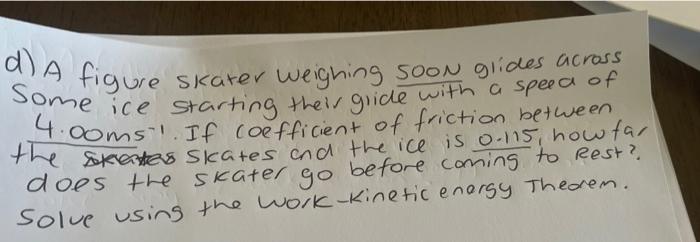 d) A figure skater weighing 500N glides across
Some ice starting their glide with a speed of
4.00ms⁻¹. If coefficient of friction between
the skates Skates and the ice is 0.115, how far
does the skater go before coming to Rest?.
Solve using the Work-Kinetic energy Theorem.